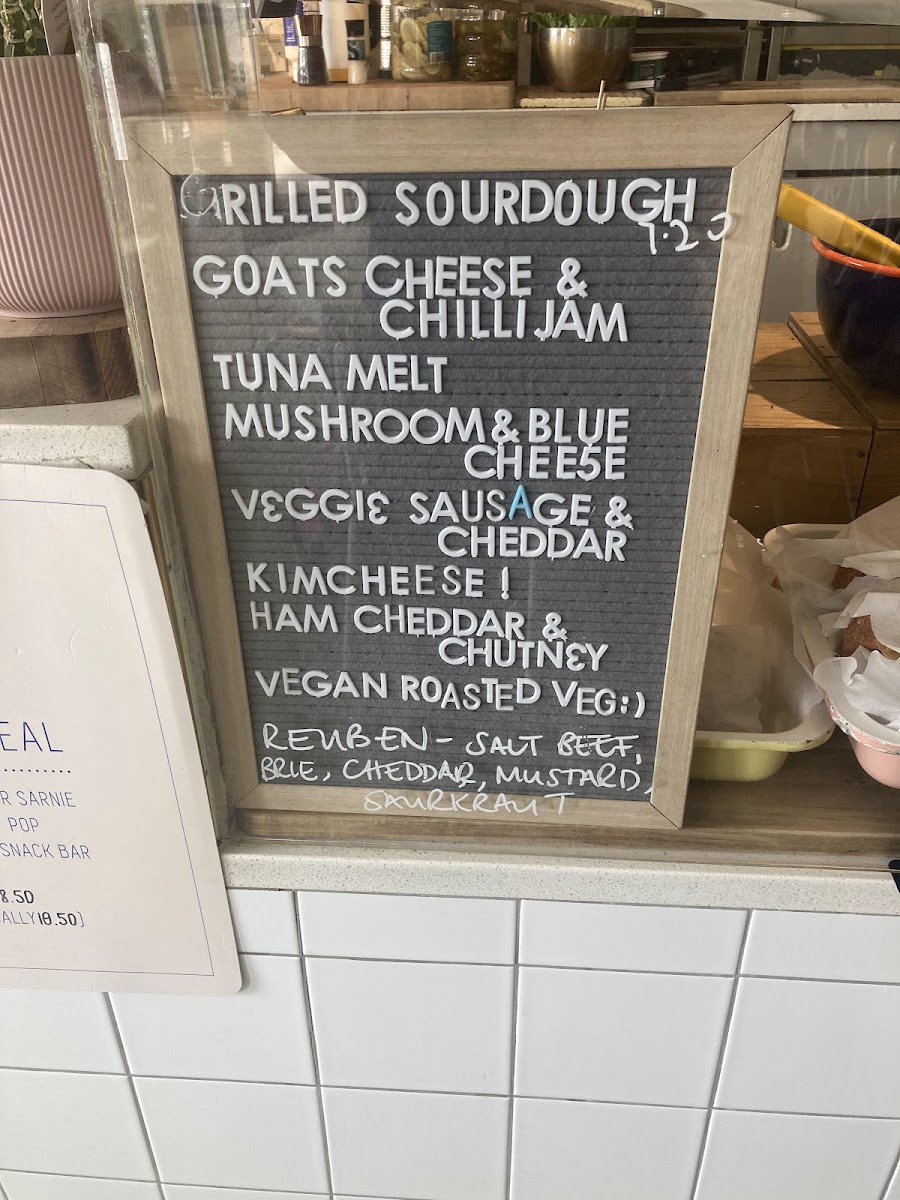 GRILLED SOURDOUGH
7.20
GOATS CHEESE &
CHILLI JAM
TUNA MELT
MUSHROOM & BLUE
CHEESE
VEGGIE SAUSAGE &
CHEDDAR
KIMCHEESE!
HAM CHEDDAR &
CHUTNEY
VEGAN ROASTED VEG:)
REUBEN - SALT BEEF,
BRIE, CHEDDAR, MUSTARD,
SAURKRAUT
EAL
R SARNIE
POP
SNACK BAR
8.50
ALLY 10.50)